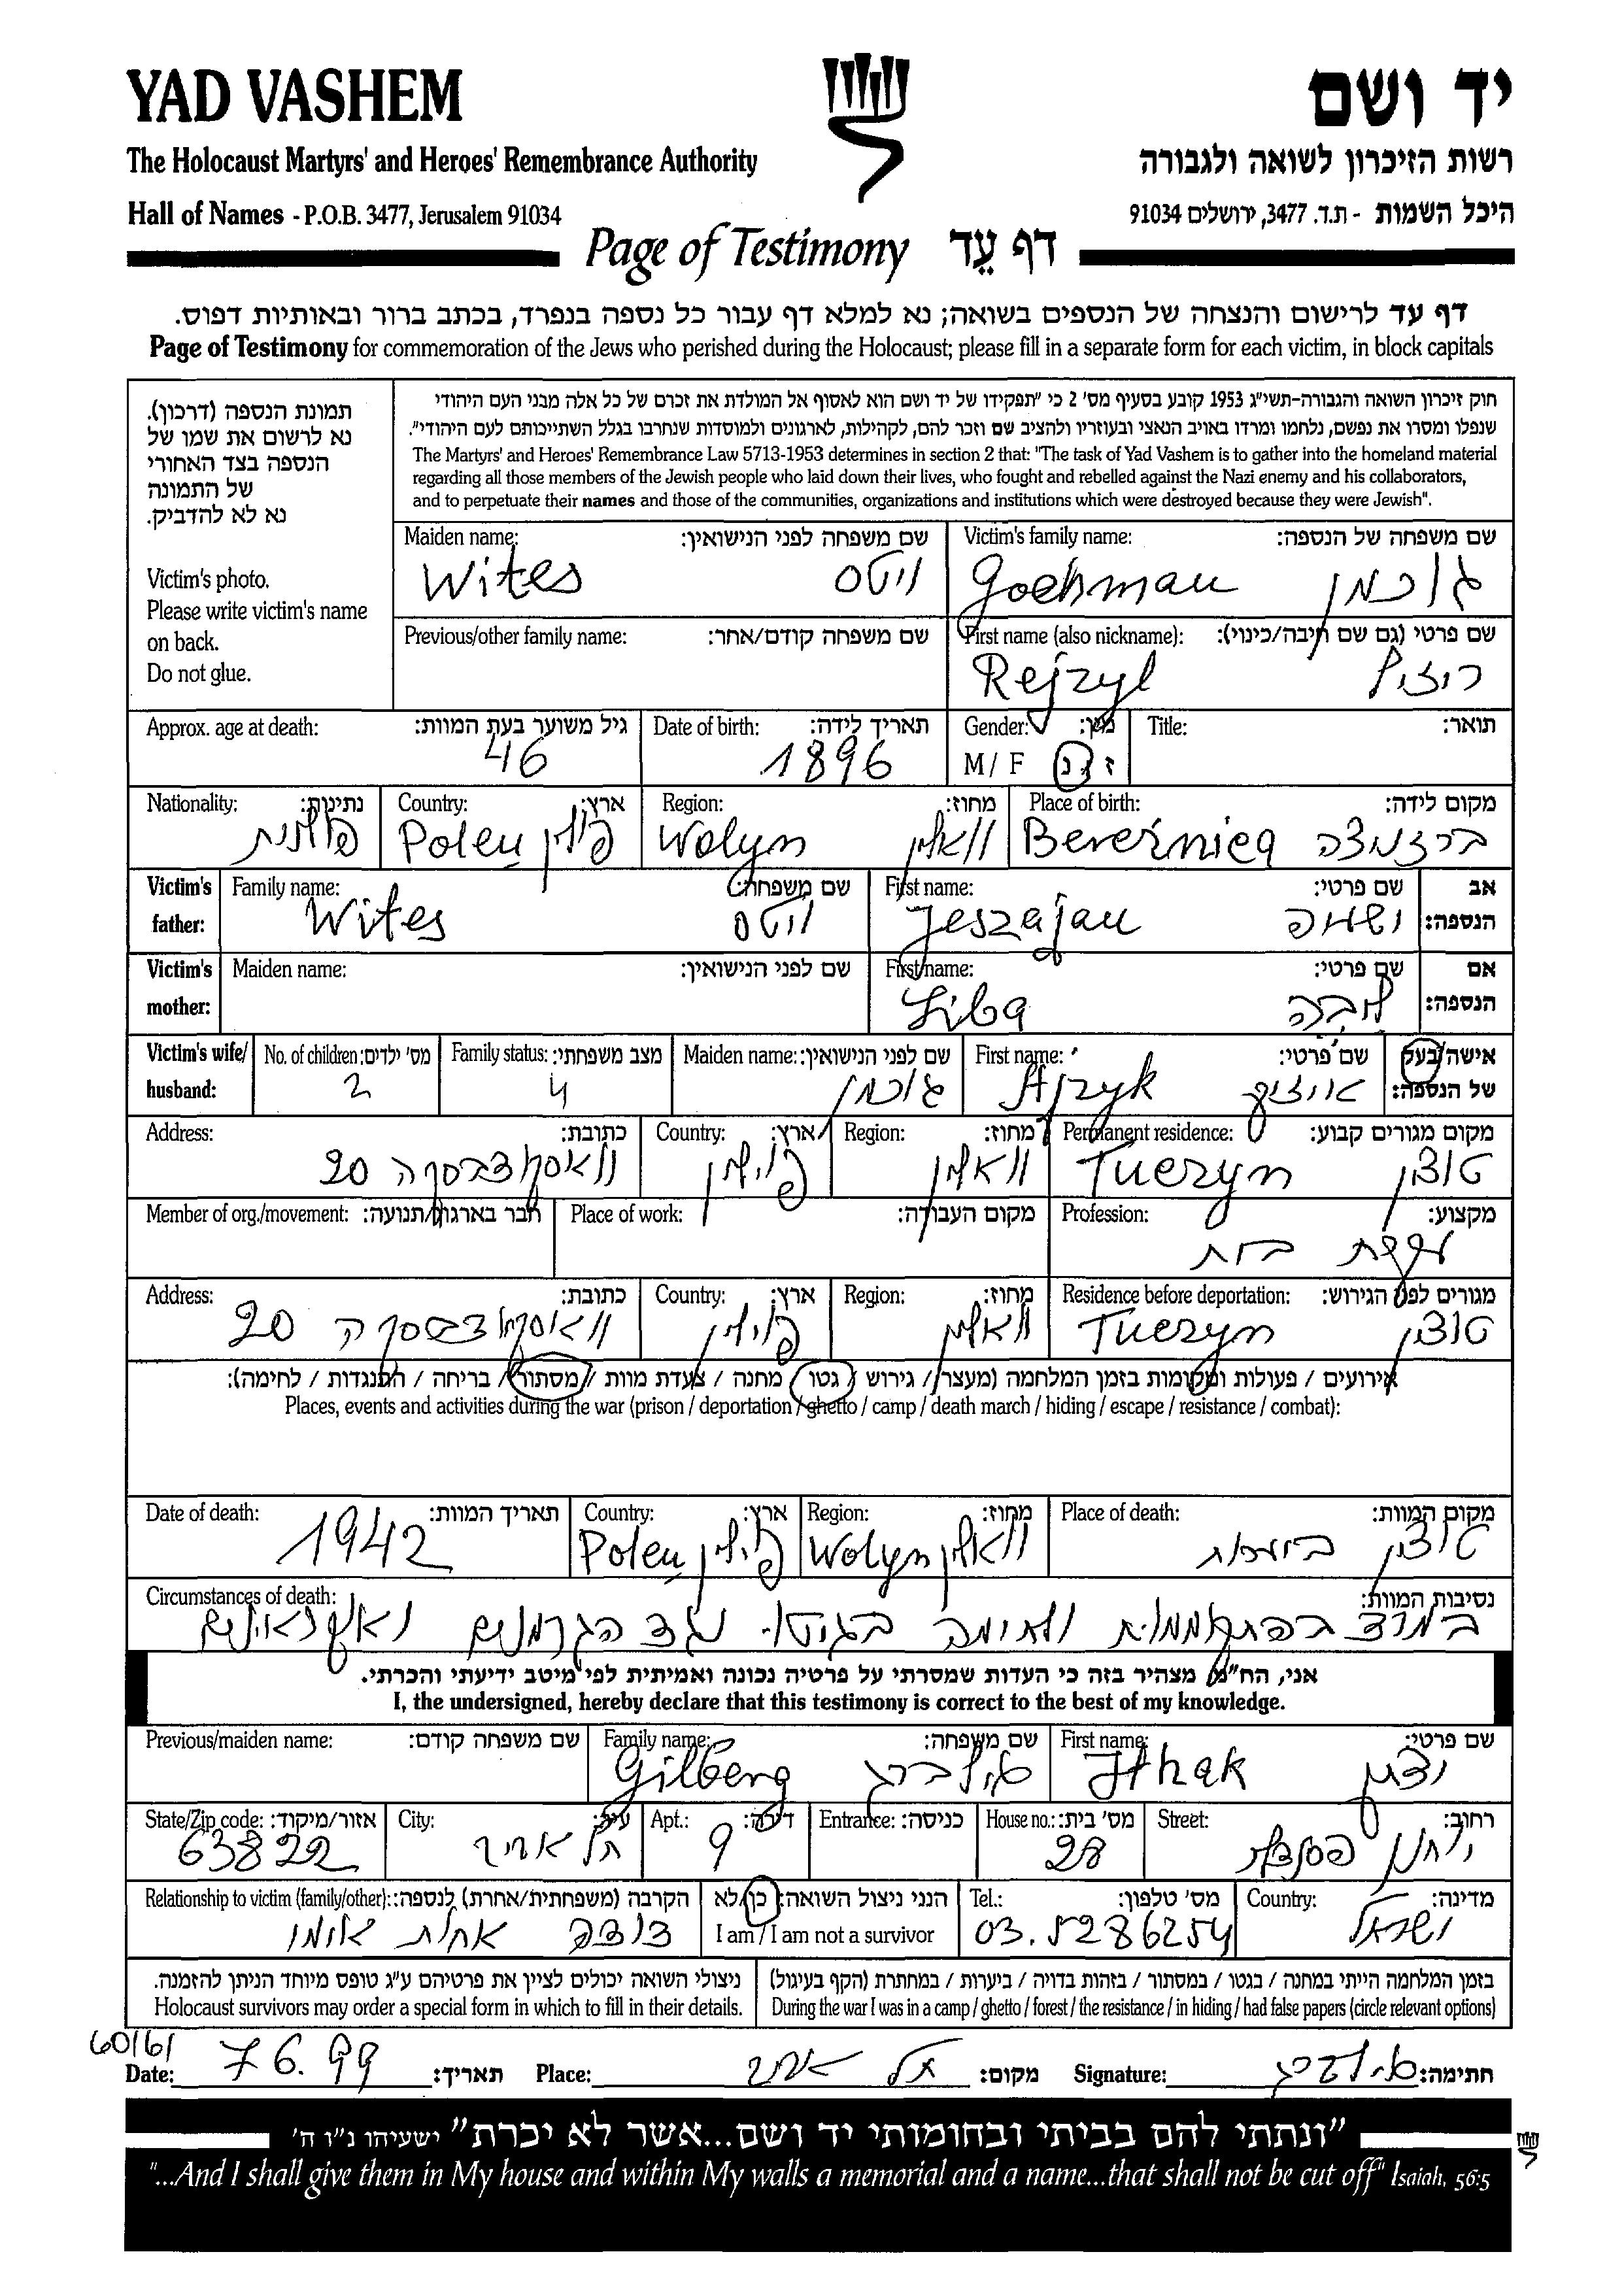 YAD VASHEM יד ושם
The Holocaust Martyrs' and Heroes' Remembrance Authority רשות הזיכרון לשואה ולגבורה
Hall of Names - P.O.B. 3477, Jerusalem 91034 היכל השמות - ת.ד. 3477, ירושלים 91034
Page of Testimony דף עֵד
דף עד לרישום והנצחה של הנספים בשואה; נא למלא דף עבור כל נספה בנפרד, בכתב ברור ובאותיות דפוס.
Page of Testimony for commemoration of the Jews who perished during the Holocaust; please fill in a separate form for each victim, in block capitals
תמונת הנספה (דרכון).
נא לרשום את שמו של
הנספה בצד האחורי
של התמונה
נא לא להדביק.
Victim's photo.
Please write victim's name
on back.
Do not glue.
חוק זיכרון השואה והגבורה-תשי"ג 1953 קובע בסעיף מס' 2 כי "תפקידו של יד ושם הוא לאסוף אל המולדת את זכרם של כל אלה מבני העם היהודי
שנפלו ומסרו את נפשם, נלחמו ומרדו באויב הנאצי ובעוזריו ולהציב שם וזכר להם, לקהילות, לארגונים ולמוסדות שנחרבו בגלל השתייכותם לעם היהודי".
The Martyrs' and Heroes' Remembrance Law 5713-1953 determines in section 2 that: "The task of Yad Vashem is to gather into the homeland material
regarding all those members of the Jewish people who laid down their lives, who fought and rebelled against the Nazi enemy and his collaborators,
and to perpetuate their names and those of the communities, organizations and institutions which were destroyed because they were Jewish".
Maiden name: שם משפחה לפני הנישואין: Victim's family name: שם משפחה של הנספה:
Wites ויטס Gochman גוכמן
Previous/other family name: שם משפחה קודם/אחר: First name (also nickname): שם פרטי (גם שם חיבה/כינוי):
Rejzyl ריזיל
Approx. age at death: גיל משוער בעת המוות: Date of birth: תאריך לידה: Gender: מין: Title: תואר:
46 1896 M / F ז / נ
Nationality: נתינות: Country: ארץ: Region: מחוז: Place of birth: מקום לידה:
פולנית Poleu פולין Wolyn וואלין Bereźnica ברזניצה
Victim's father: Family name: שם משפחה: First name: שם פרטי: אב הנספה:
Wites ויטס Jeszajau ישעיה
Victim's mother: Maiden name: שם לפני הנישואין: First name: שם פרטי: אם הנספה:
Liba ליבה
Victim's wife/ husband: No. of children: מס' ילדים: Family status: מצב משפחתי: Maiden name: שם לפני הנישואין: First name: שם פרטי: אישה/בעל של הנספה:
2 4 גוכמן Ajzyk אייזיק
Address: כתובת: Country: ארץ: Region: מחוז: Permanent residence: מקום מגורים קבוע:
20 פולין וואלין Tuczyn טוצין
Member of org./movement: חבר בארגון/תנועה: Place of work: מקום העבודה: Profession: מקצוע:
עקרת בית
Address: כתובת: Country: ארץ: Region: מחוז: Residence before deportation: מגורים לפני הגירוש:
20 פולין וואלין Tuczyn טוצין
אירועים / פעולות ומקומות בזמן המלחמה (מעצר / גירוש / גטו / מחנה / צעדת מוות / מסתור / בריחה / התנגדות / לחימה):
Places, events and activities during the war (prison / deportation / ghetto / camp / death march / hiding / escape / resistance / combat):
Date of death: תאריך המוות: Country: ארץ: Region: מחוז: Place of death: מקום המוות:
1942 Poleu פולין Wolyn וואלין טוצין ביערות
Circumstances of death: נסיבות המוות:
במרד בהתקוממות ולחימה בגיטו נגד הגרמנים ואוקראינים
אני, הח"מ, מצהיר בזה כי העדות שמסרתי על פרטיה נכונה ואמיתית לפי מיטב ידיעתי והכרתי.
I, the undersigned, hereby declare that this testimony is correct to the best of my knowledge.
Previous/maiden name: שם משפחה קודם: Family name: שם משפחה: First name: שם פרטי:
Gilberg גילברג Ithak יצחק
State/Zip code: אזור/מיקוד: City: עיר: Apt.: דירה: Entrance: כניסה: House no.: מס' בית: Street: רחוב:
63822 תל אביב 9 28 יוחנן הסנדלר
Relationship to victim (family/other): הקרבה (משפחתית/אחרת) לנספה: הנני ניצול השואה: כן/לא Tel.: מס' טלפון: Country: מדינה:
דודה אחות אימי I am / I am not a survivor 03.5286254 ישראל
ניצולי השואה יכולים לציין את פרטיהם ע"ג טופס מיוחד הניתן להזמנה. בזמן המלחמה הייתי במחנה / בגטו / במסתור / בזהות בדויה / ביערות / במחתרת (הקף בעיגול)
Holocaust survivors may order a special form in which to fill in their details. During the war I was in a camp / ghetto / forest / the resistance / in hiding / had false papers (circle relevant options)
60161
Date: 7 6. 99 תאריך: Place: תל אביב מקום: Signature: גילברג חתימה:
"ונתתי להם בביתי ובחומותי יד ושם...אשר לא יכרת" ישעיהו נ"ו ה'
"...And I shall give them in My house and within My walls a memorial and a name...that shall not be cut off" Isaiah, 56:5